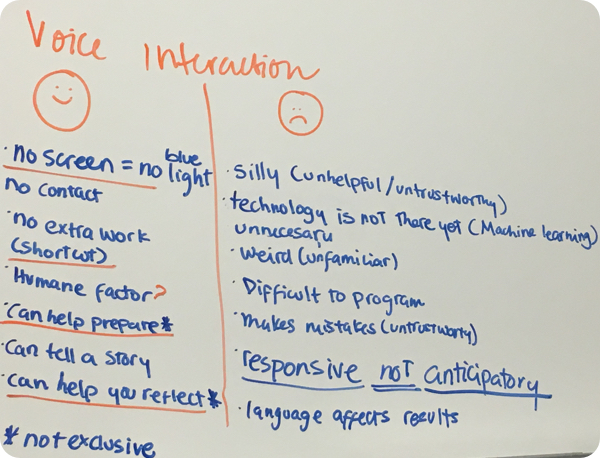 Voice Interaction
• no screen = no blue light
no contact
• no extra work
(shortcut)
• Humane factor?
• Can help prepare*
• Can tell a story
• can help you reflect*
* not exclusive
• silly (unhelpful/untrustworthy)
• technology is not there yet (Machine learning)
unnecesary
• weird (unfamiliar)
• Difficult to program
• makes mistakes (untrustworty)
• responsive not anticipatory
• language affects results